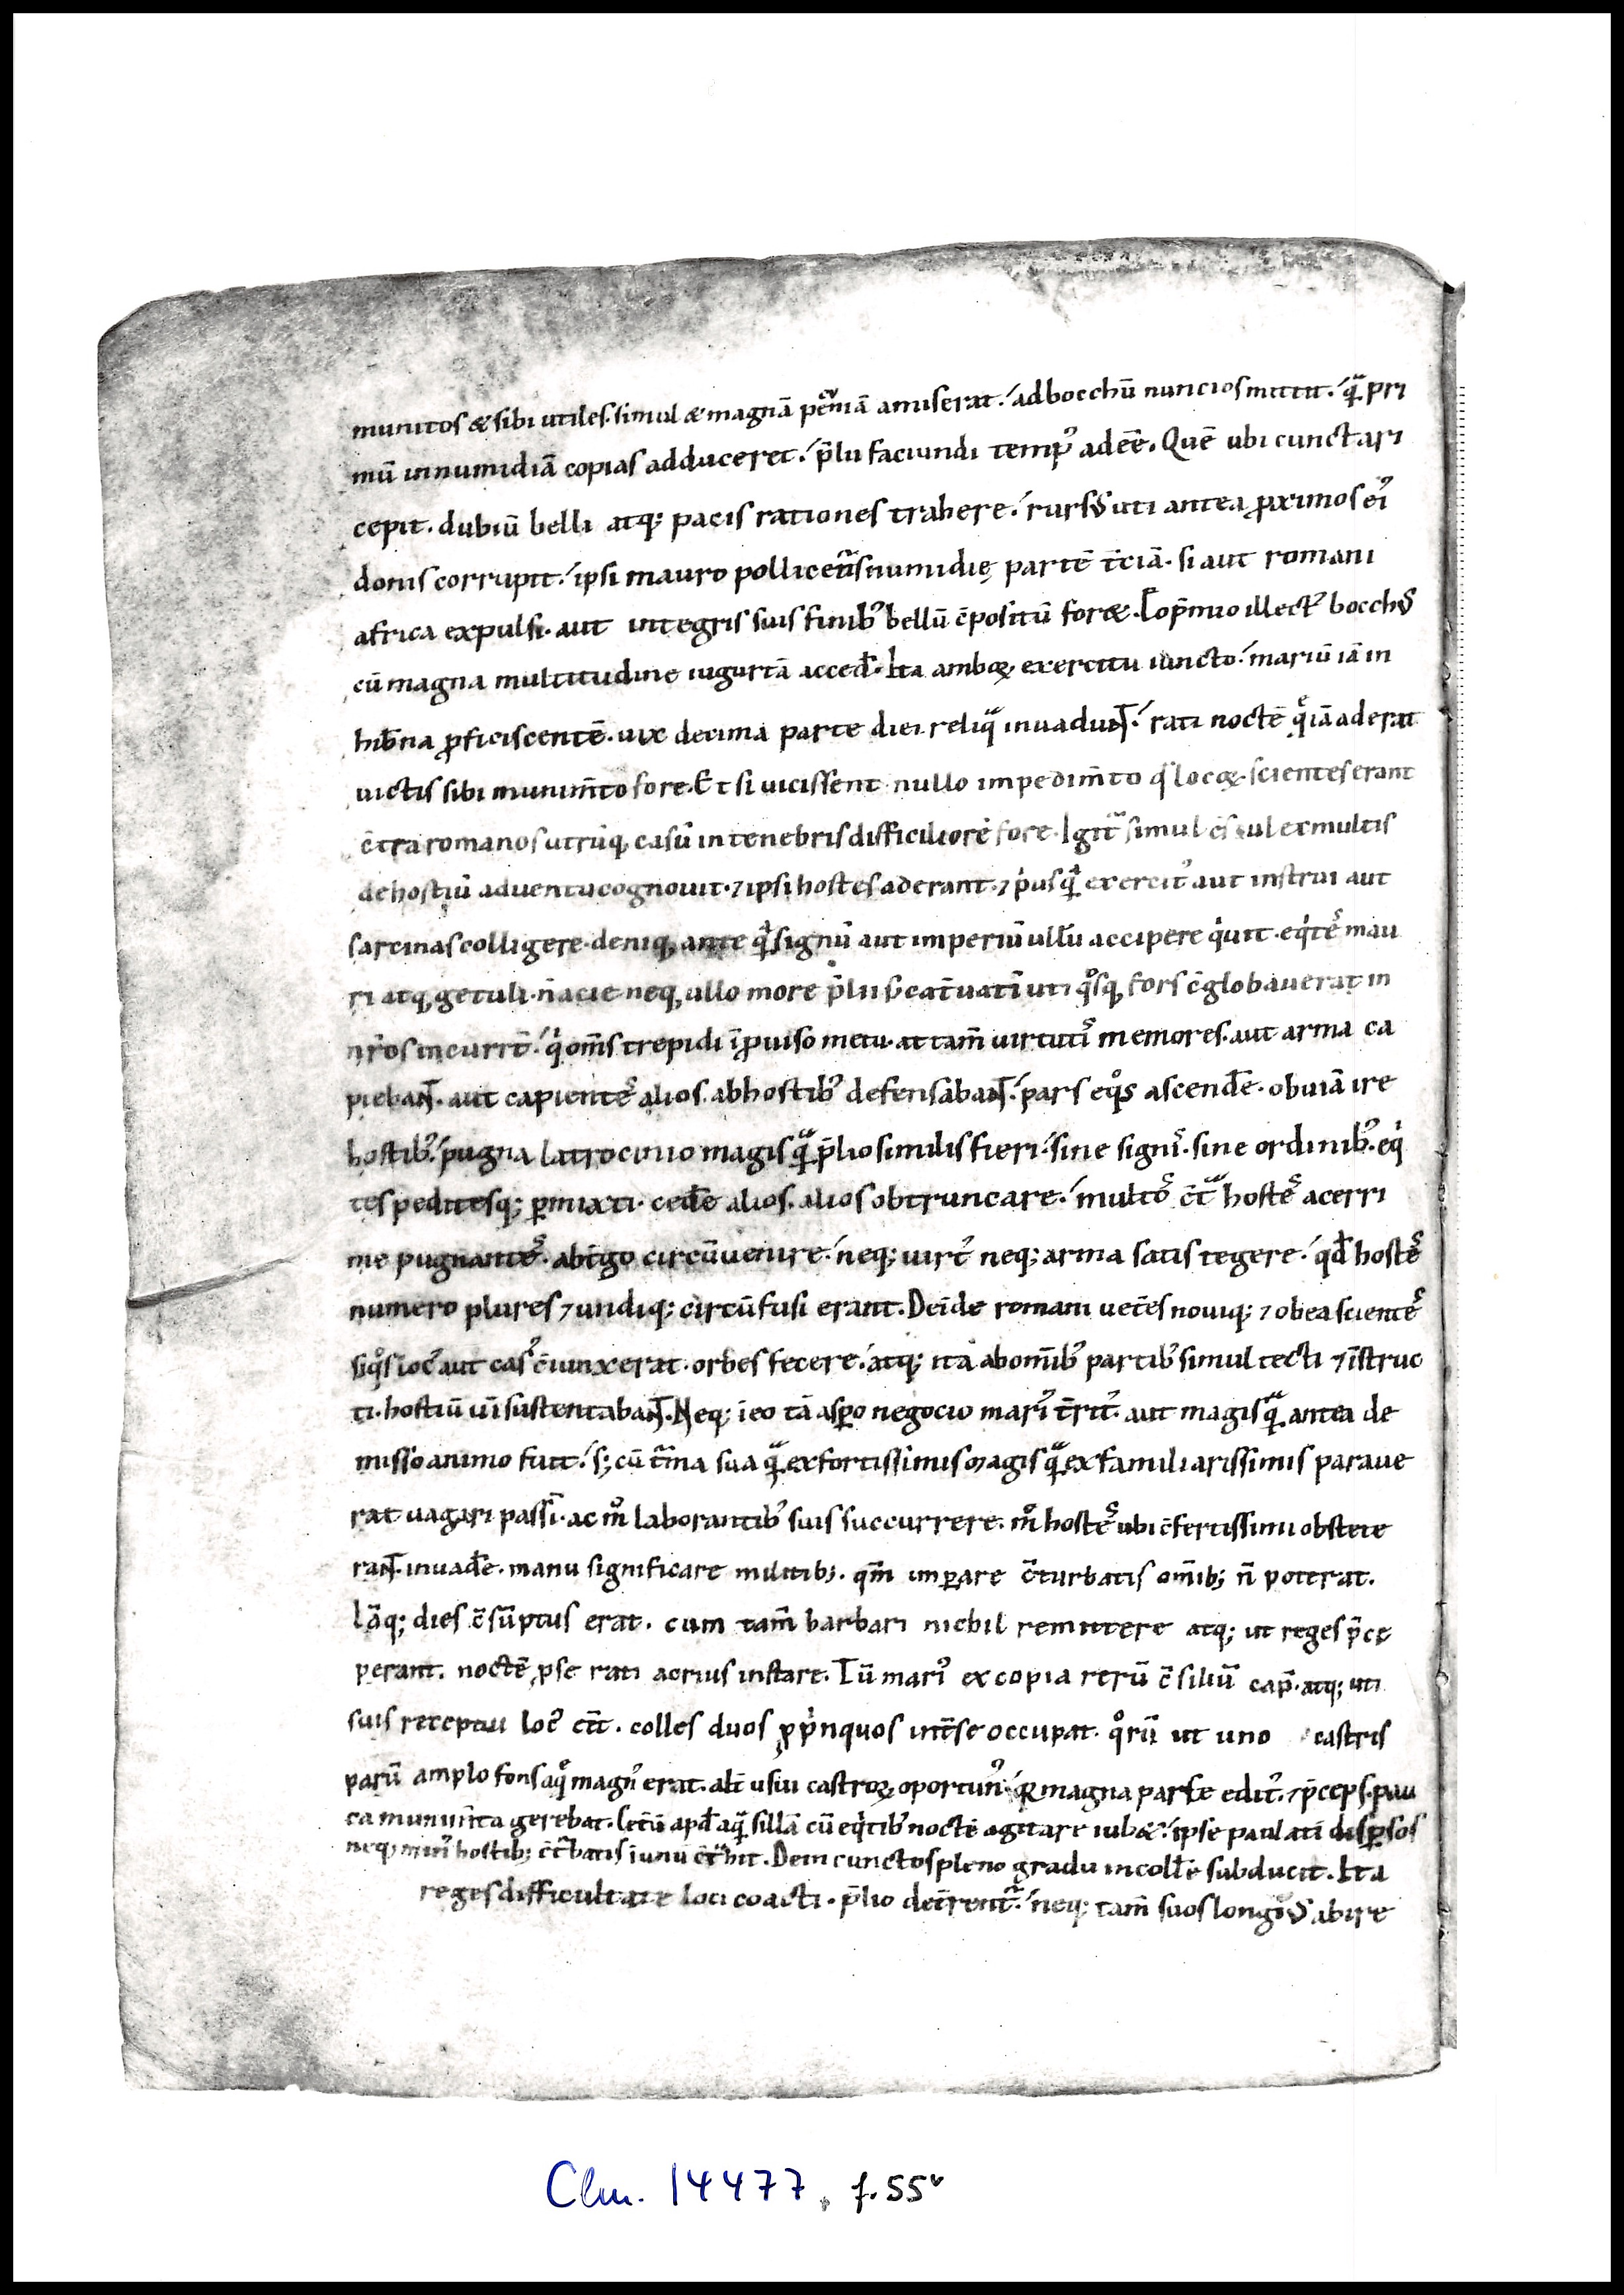 munitos & sibi utiles. simul & magnā pecūiā amiserat. ad bocchū nuncios mittit. q̄ pri
mū in numidiā copias adduceret. p̄lii faciundi temp᾿ adeē. Quē ubi cunctari
cepit. dubiū belli atq; pacis rationes trahere. rursꝰ uti antea ꝓximos ei᾿
donis corrupit. ipsi mauro pollicēs numidię partē t̄ciā. si aut romani
africa expulsi. aut integris suis finib᾿ bellū c̄positū for&. Eo p̄mio illect᾿ bocchꝰ
cū magna multitudine iugurtā acced̄. Ita amboꝝ exercitu iuncto. mariū iā in
hib̄na ꝓficiscentē. uix decima parte diei reliq̄ inuadunt. rati noctē q̄ iā aderat
uictis sibi munim̄to fore. Et si uicissent nullo impedim̄to q locoꝝ scientes erant
c̄tra romanos utrūq, casū in tenebris difficiliorē fore. Igit simul c̄sul ex multis
de hostiū aduentu cognouit. ⁊ ipsi hostes aderant. ⁊ p̓usq̄ exercit᾿ aut instrui aut
sarcinas colligere. deniq, ante q̄ signū aut imperiū ullū accipere q̓uit. eq̓te᾿ mau
ri atq, getuli. n̄ acie neq, ullo more p̄lii s; cat̄uatī uti q̊sq, fors c̄globauerat in
nr̄os incurrt̄. q̓ om̄s trepidi īprouiso metu. at tam̄ uirtuti᾿ memores. aut arma ca
piebant. aut capiente᾿ alios. ab hostib᾿ defensabant. pars eq̊s ascend̄e. obuiā ire
hostib᾿. pugna latrocinio magis q̄ p̄lio similis fieri. sine signi᾿. sine ordinib᾿. eq̓
tes peditesq; ꝑmixti. ced̄e alios. alios obtruncare. multo᾿ c̄t hoste᾿ acerri
me pugnante᾿. ab t̄go circūuenire. neq; uirt᾿ neq; arma satis tegere. qd̄ hoste᾿
numero plures ⁊ undiq; circūfusi erant. Deīde romani uet̄es nouiq; ⁊ ob ea sciente᾿
siq̊s loc᾿ aut cas᾿ c̄iunxerat. orbes fecere. atq; ita ab om̄ib᾿ partib᾿ simul tecti ⁊ īstruc
ti. hostiū uī sustentabant. Neq; ī eo tā aspo negocio mari᾿ t̄rit᾿. aut magis q̄ antea de
misso animo fuit. s; cū t̄ma sua q̄ ex fortissimis magis q̄ ex familiarissimis paraue
rat uagari passī. ac m̊ laborantib᾿ suis succurrere. m̊ hoste᾿ ubi c̄fertissimi obstete
rant. inuad̄e. manu significare militib;. qm̄ imꝑare c̄turbatis om̄ib; n̄ poterat.
Iāq; dies c̄sūptus erat. cum tam̄ barbari nichil remittere atq; ut reges p̄ce
perant. noctē ꝓ se rati acrius instare. Tū mari᾿ ex copia rerū c̄siliū cap̄. atq; uti
suis receptui loc᾿ ēt. colles duos ꝓp̓nquos int̄ se occupat. q̊rū ut uno castris
parū amplo fons aq̄ magn᾿ erat. alt̄ usui castroꝝ oportun᾿. q; magna parte edit᾿. ⁊ p̄ceps. pau
ca munim̄ta gerebat. Cet̄ū apd̄ aq̄ sillā cū eq̓tib᾿ noctē agitare iub&. ipse paulatī disꝑsos
neq, min᾿ hostib; c̄t̄batis ī unū c̄t̄hit. Dein cunctos pleno gradu in collē subducit. Ita
reges difficultate loci coacti. p̄lio det̄rent. neq; tam̄ suos longiꝰ abire
Clm. 14477, f. 55ᵛ